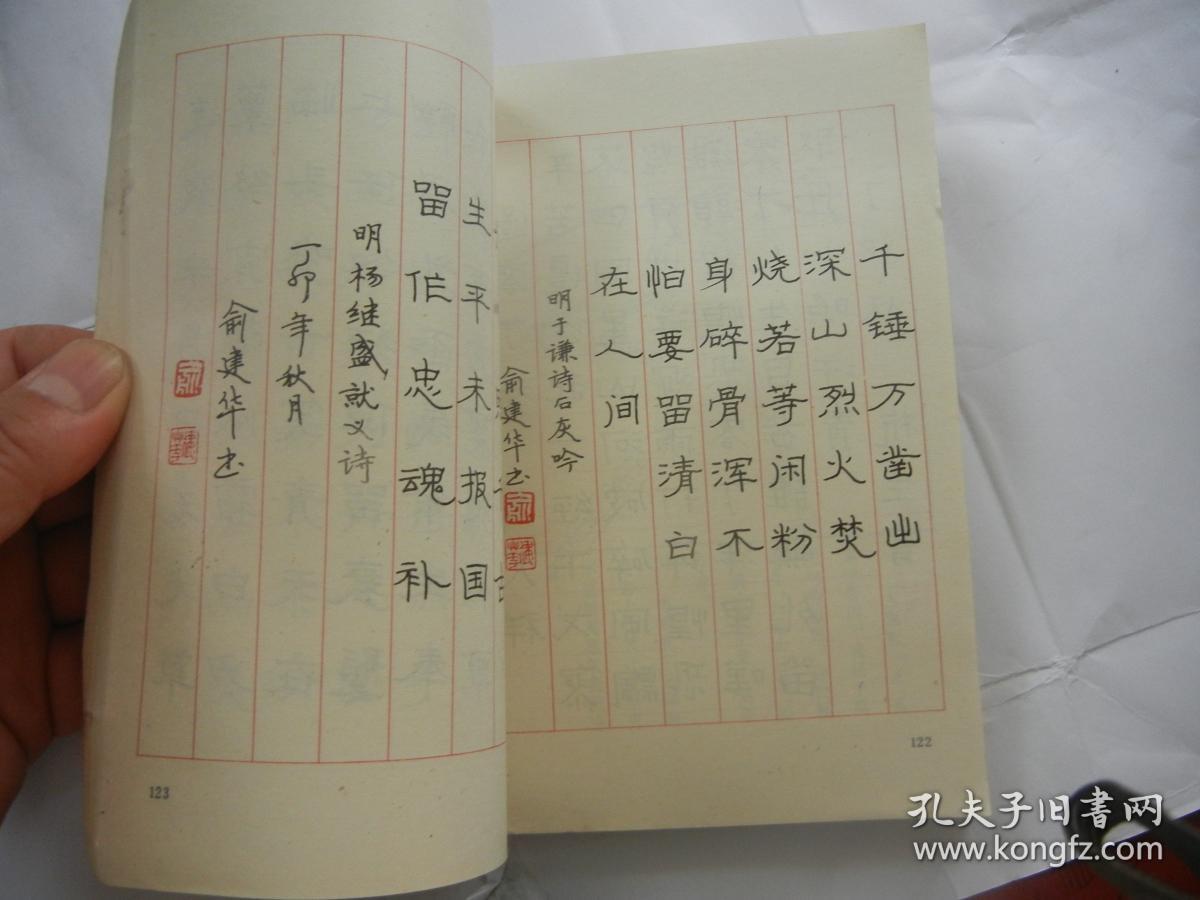 千锤万凿出
深山烈火焚
烧若等闲粉
身碎骨浑不
怕要留清白
在人间
明于谦诗石灰吟
俞建华书
122
生平未报国
留作忠魂补
明杨继盛就义诗
丁卯年秋月
俞建华书
123
孔夫子旧书网
www.kongfz.com